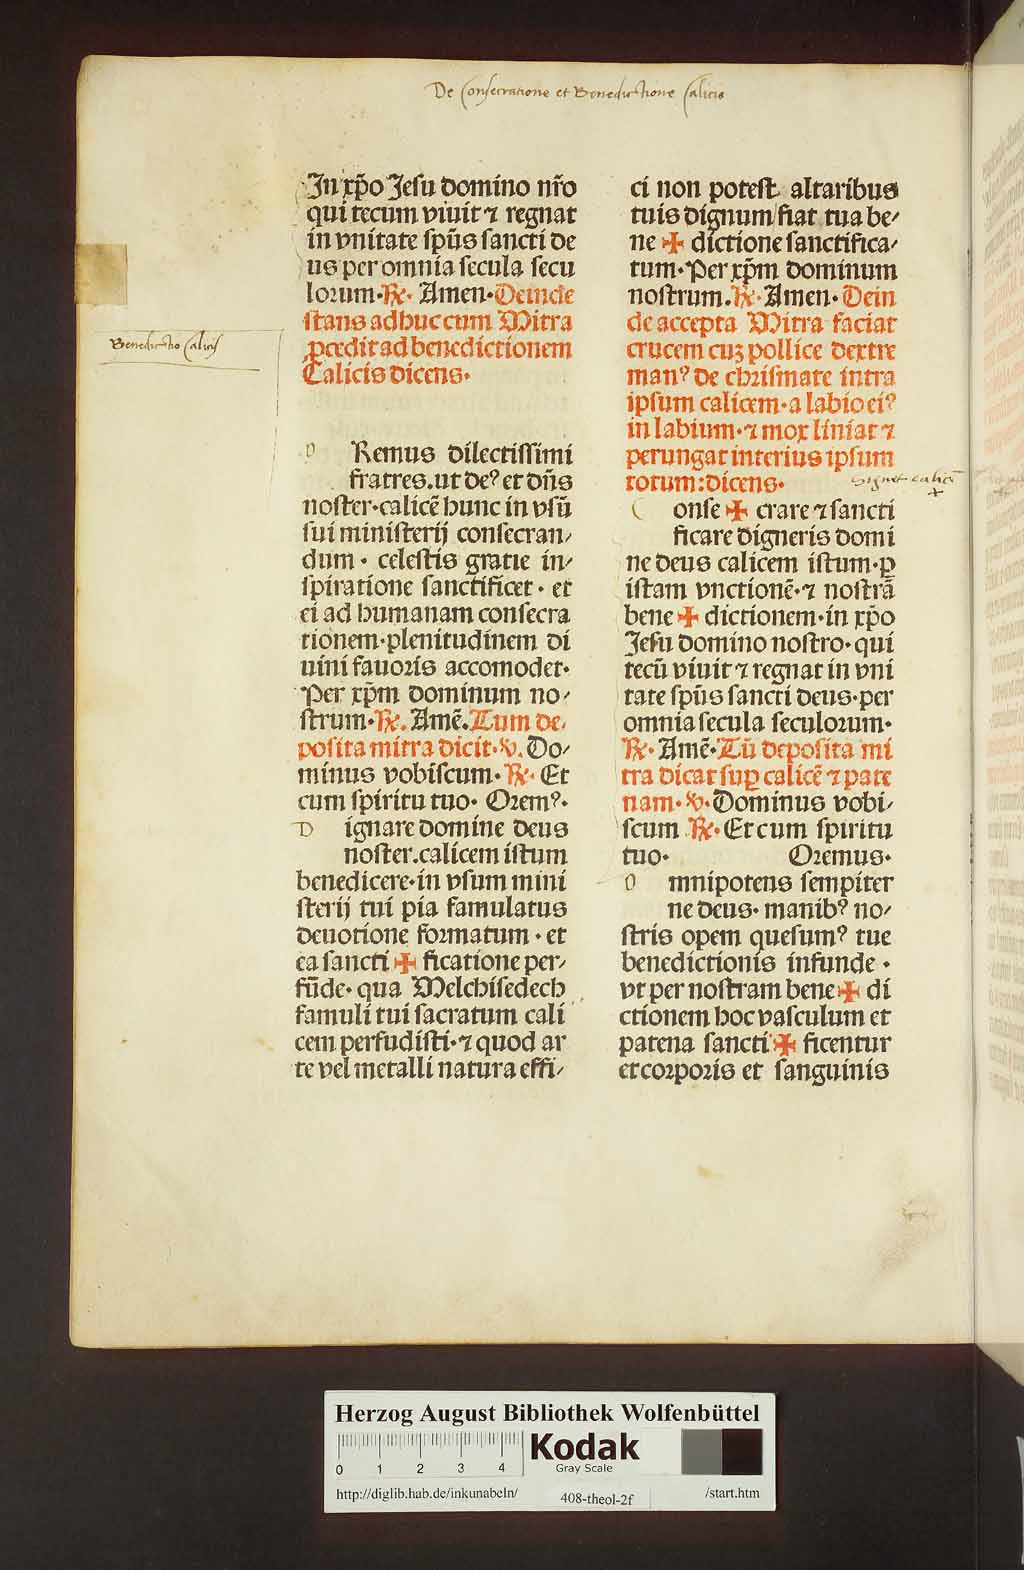 De Consecratione et Benedictione Calicis
In xp̃o Jesu domino nr̃o
qui tecum viuit ⁊ regnat
in vnitate sp̃us sancti de
us per omnia secula secu
lorum·℟· Amen·Deinde
stans adhuc cum Mitra
ꝓcedit ad benedictionem
Calicis dicens·
Benedictio Calicis
O Remus dilectissimi
fratres.ut deꝰ et dñs
noster·calicẽ hunc in vsũ
sui ministerij consecran/
dum· celestis gratie in/
spiratione sanctificet· et
ei ad humanam consecra
tionem·plenitudinem di
uini fauoris accomodet·
Per xp̃m dominum no/
strum·℟. Amẽ.Tum de/
posita mitra dicit·℣. Do/
minus vobiscum·℟· Et
cum spiritu tuo· Oremꝰ·
D ignare domine deus
noster.calicem istum
benedicere·in vsum mini
sterij tui pia famulatus
deuotione formatum· et
ea sancti ✠ ficatione per/
fũde· qua Melchisedech
famuli tui sacratum cali
cem perfudisti·⁊ quod ar
te vel metalli natura effi/
ci non potest altaribus
tuis dignum fiat tua be/
ne ✠ dictione sanctifica/
tum·Per xp̃m dominum
nostrum.℟·Amen· Dein
de accepta Mitra faciat
crucem cuꝫ pollice dextre
manꝰ de chrismate intra
ipsum calicem·a labio eiꝰ
in labium·⁊ mox liniat ⁊
perungat interius ipsum
totum:dicens·
Signet calicẽ
C onse ✠ crare ⁊ sancti
ficare digneris domi
ne deus calicem istum·ꝑ
istam vnctionẽ·⁊ nostrã
bene ✠ dictionem·in xp̃o
Jesu domino nostro· qui
tecũ viuit ⁊ regnat in vni
tate sp̃us sancti deus·per
omnia secula seculorum·
℟· Amẽ·Tũ deposita mi
tra dicat suꝑ calicẽ ⁊ pate
nam·℣·Dominus vobi/
scum ℟· Et cum spiritu
tuo· Oremus·
O mnipotens sempiter
ne deus· manibꝰ no/
stris opem quesumꝰ tue
benedictionis infunde ·
vt per nostram bene ✠ di
ctionem hoc vasculum et
patena sancti ✠ ficentur
et corporis et sanguinis
Herzog August Bibliothek Wolfenbüttel
0 1 2 3 4
Kodak
Gray Scale
http://diglib.hab.de/inkunabeln/ 408-theol-2f /start.htm